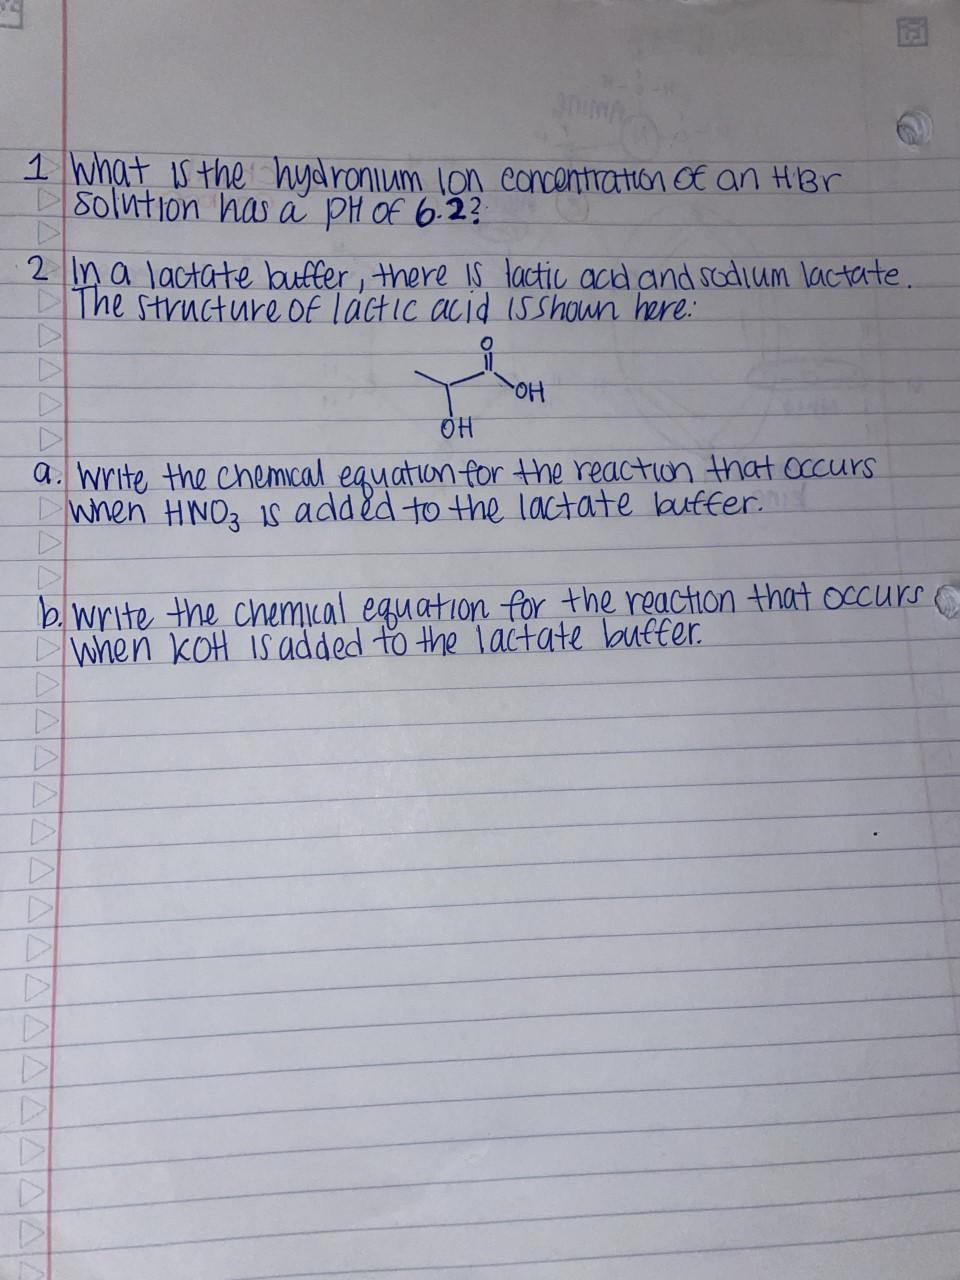 1 What is the hydronium ion concentration of an HBr
solution has a pH of 6.2?
2 In a lactate buffer, there is lactic acid and sodium lactate.
The structure of lactic acid is shown here:
O
OH
OH
a. Write the chemical equation for the reaction that occurs
when HNO₃ is added to the lactate buffer.
b. Write the chemical equation for the reaction that occurs
when KOH is added to the lactate buffer.